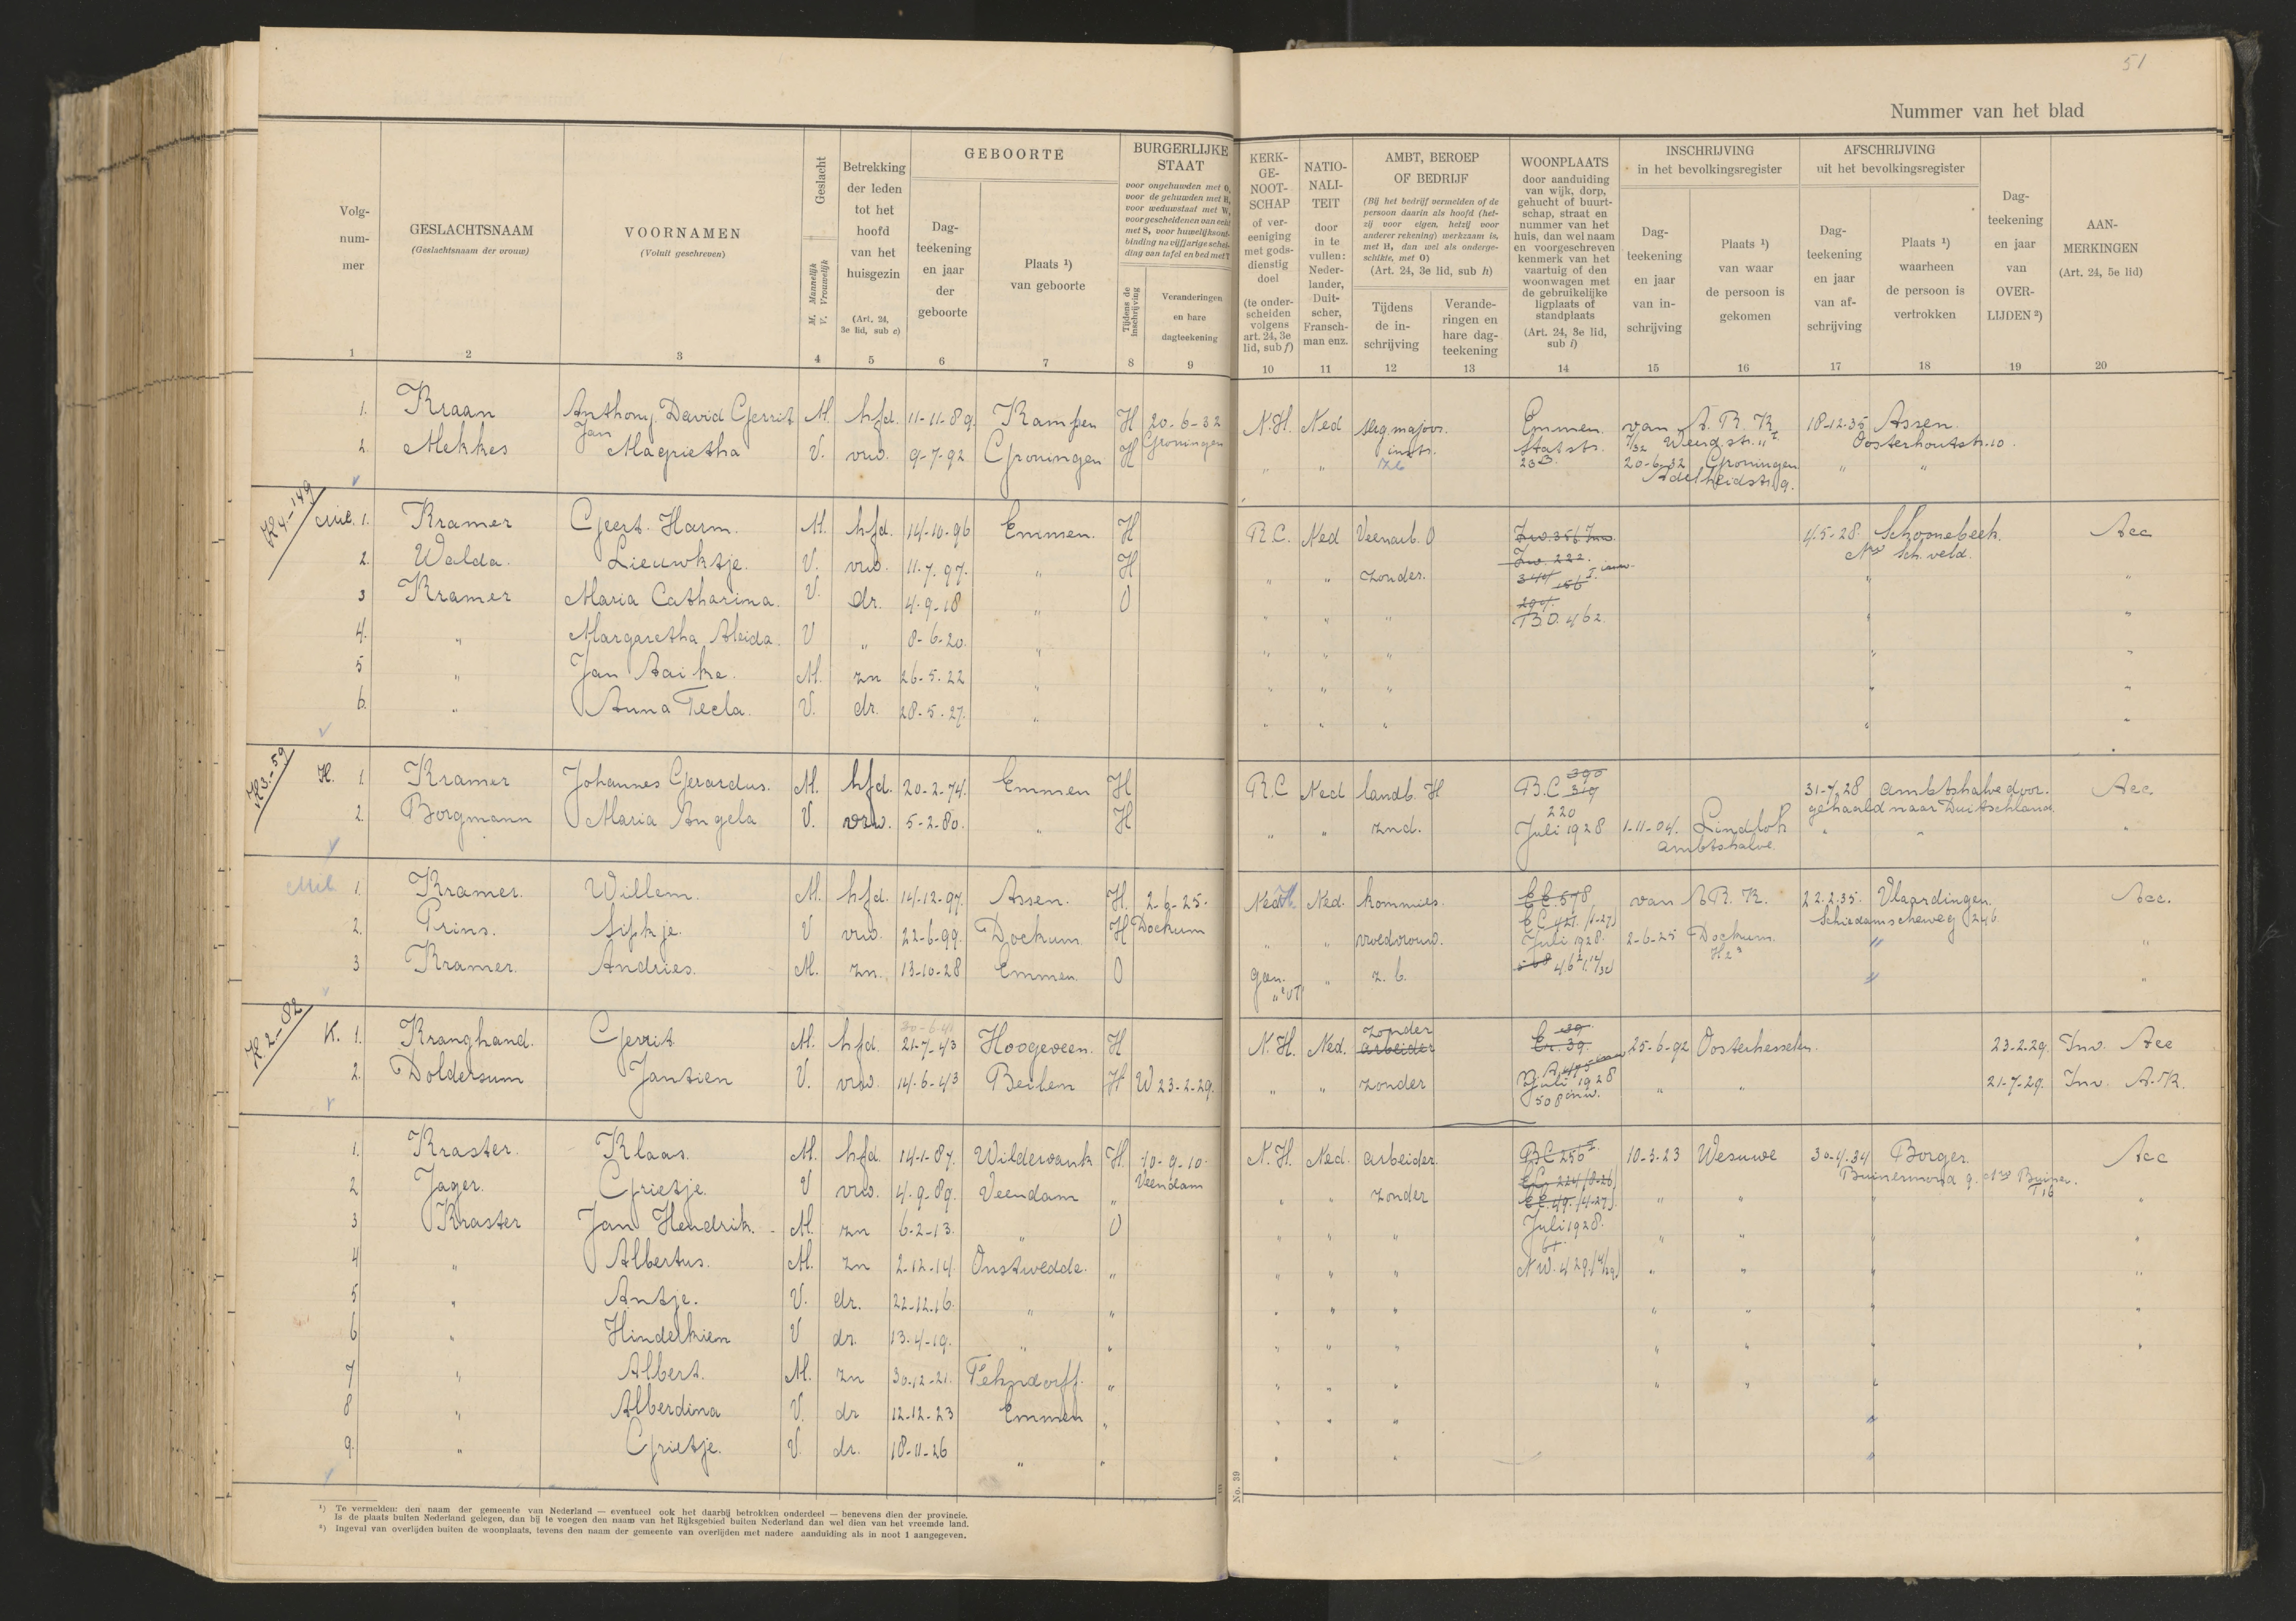 51
Nummer van het blad
Volg-
num-
mer
GESLACHTSNAAM
(Geslachtsnaam der vrouw)
VOORNAMEN
(Voluit geschreven)
Geslacht
M. Mannelijk
V. Vrouwelijk
Betrekking
der leden
tot het
hoofd
van het
huisgezin
(Art. 24,
3e lid, sub c)
GEBOORTE
Dag-
teekening
en jaar
der
geboorte
Plaats ¹)
van geboorte
BURGERLIJKE
STAAT
voor ongehuwden met O,
voor de gehuwden met H,
voor weduwstaat met W,
voor gescheidenen van echt
met S, voor huwelijksont-
binding na vijfjarige schei-
ding van tafel en bed met T
Tijdens de
inschrijving
Veranderingen
en hare
dagteekening
KERK-
GE-
NOOT-
SCHAP
of ver-
eeniging
met gods-
dienstig
doel
(te onder-
scheiden
volgens
art. 24, 3e
lid, sub f)
NATIO-
NALI-
TEIT
door
in te
vullen:
Neder-
lander,
Duit-
scher,
Fransch-
man enz.
AMBT, BEROEP
OF BEDRIJF
(Bij het bedrijf vermelden of de
persoon daarin als hoofd (het-
zij voor eigen, hetzij voor
anderer rekening) werkzaam is,
met H, dan wel als onderge-
schikte, met O)
(Art. 24, 3e lid, sub h)
Tijdens
de in-
schrijving
Verande-
ringen en
hare dag-
teekening
WOONPLAATS
door aanduiding
van wijk, dorp,
gehucht of buurt-
schap, straat en
nummer van het
huis, dan wel naam
en voorgeschreven
kenmerk van het
vaartuig of den
woonwagen met
de gebruikelijke
ligplaats of
standplaats
(Art. 24, 3e lid,
sub i)
INSCHRIJVING
in het bevolkingsregister
Dag-
teekening
en jaar
van in-
schrijving
Plaats ¹)
van waar
de persoon is
gekomen
AFSCHRIJVING
uit het bevolkingsregister
Dag-
teekening
en jaar
van af-
schrijving
Plaats ¹)
waarheen
de persoon is
vertrokken
Dag-
teekening
en jaar
van
OVER-
LIJDEN ²)
AAN-
MERKINGEN
(Art. 24, 5e lid)
1 2 3 4 5 6 7 8 9 10 11 12 13 14 15 16 17 18 19 20
1. Kraan Anthony David Gerrit M. hfd. 11-11-89. Kampen H 20-6-32 N.H. Ned serg. majoor Emmen. van A.B.K. 18-12-35 Assen.
Jan Groningen inst. Statstr. Oosterhoutstr. 10.
2. Mekkes Magrietha V. vrw. 9-7-92 Groningen H " " 23B. 20-6-32 Groningen " "
Adelheidstr. 9.
K 4-149
Mil. 1. Kramer Geert Harm. M. hfd. 14-10-96 Emmen. H R.C. Ned Veenarb. O 4-5-28. Schoonebeek. Acc
Nw Sch. veld.
2. Walda. Lieuwktje. V. vrw. 11-7-97. " H " " zonder. Zw. 222. " "
3 Kramer Maria Catharina. V. dr. 4-9-18 " O " " " 204. " "
B.O. 462.
4. " Margaretha Aleida. V " 8-6-20. " " " " " "
5 " Jan Aaike. M. zn 26-5-22 " " " " " "
6. " Anna Tecla. V. dr. 28-5-27. " " " " " "
K3-59
H. 1 Kramer Johannes Gerardus. M. hfd. 20-2-74. Emmen H R.C Ned landb. H 390 B.C 319 31-7-28 ambtshalve door- Acc
gehaald naar Duitschland.
2. Borgmann Maria Angela V. vrw. 5-2-80. " H " " znd. 220 Juli 1928 1-11-04. Lindloh " " "
ambtshalve.
Mil 1. Kramer. Willem. M. hfd. 14-12-97. Assen. H. 2-6-25. Ned H. Ned. kommies. E.E. 578 van A.B.K. 22-2-35. Vlaardingen. Acc.
Dockum E.C. 421. (1-27) Schiedamscheweg 246.
2. Prins. Sipkje. V vrw. 22-6-99. Dockum H " " vroedvrouw. Juli 1928. 2-6-25 Dockum. " "
3 Kramer. Andries. M. zn. 13-10-28 Emmen. O geen. " z.b. " "
K 2-82
K. 1. Kranghand. Gerrit M. hfd. 21-7-43 Hoogeveen. H N.H. Ned. zonder arbeider Er. 39. 25-6-92 Oosterhesselen 23-2-29. Inv. Acc
2. Doldersum Jantien V. vrw. 14-6-43 Beilen H W 23-2-29. " " zonder Juli 1928 " " 21-7-29. Inv. A.K.
508
1. Kraster. Klaas. M. hfd. 14-1-87. Wildervank H. 10-9-10. N.H. Ned. arbeider. B.C 250 I 10-3-23 Wesuwe 30-4-34 Borger. Acc
Veendam Buinermond 9. Nw Buinen.
2 Jager. Grietje. V vrw. 4-9-89. Veendam " " " zonder E.E. 49. (4-27) " " " "
3 Kraster Jan Hendrik. M. zn 6-2-13. " O " " " Juli 1928. " " " "
61
4 " Albertus. M. zn 2-12-14. Onstwedde. " " " " N.W. 429. " " " "
5 " Antje. V. dr. 22-12-16. " " " " " " " " "
6 " Hinderkien V dr. 13-4-19. " " " " " " " " "
7 " Albert. M. zn 30-12-21. Fehndorff. " " " " " " "
8 " Alberdina V. dr 12-12-23 Emmen " " " " "
9. " Grietje. V. dr. 18-11-26 " " " " "
No. 39
¹) Te vermelden: den naam der gemeente van Nederland — eventueel ook het daarbij betrokken onderdeel — benevens dien der provincie.
Is de plaats buiten Nederland gelegen, dan bij te voegen den naam van het Rijksgebied buiten Nederland dan wel dien van het vreemde land.
²) Ingeval van overlijden buiten de woonplaats, tevens den naam der gemeente van overlijden met nadere aanduiding als in noot 1 aangegeven.